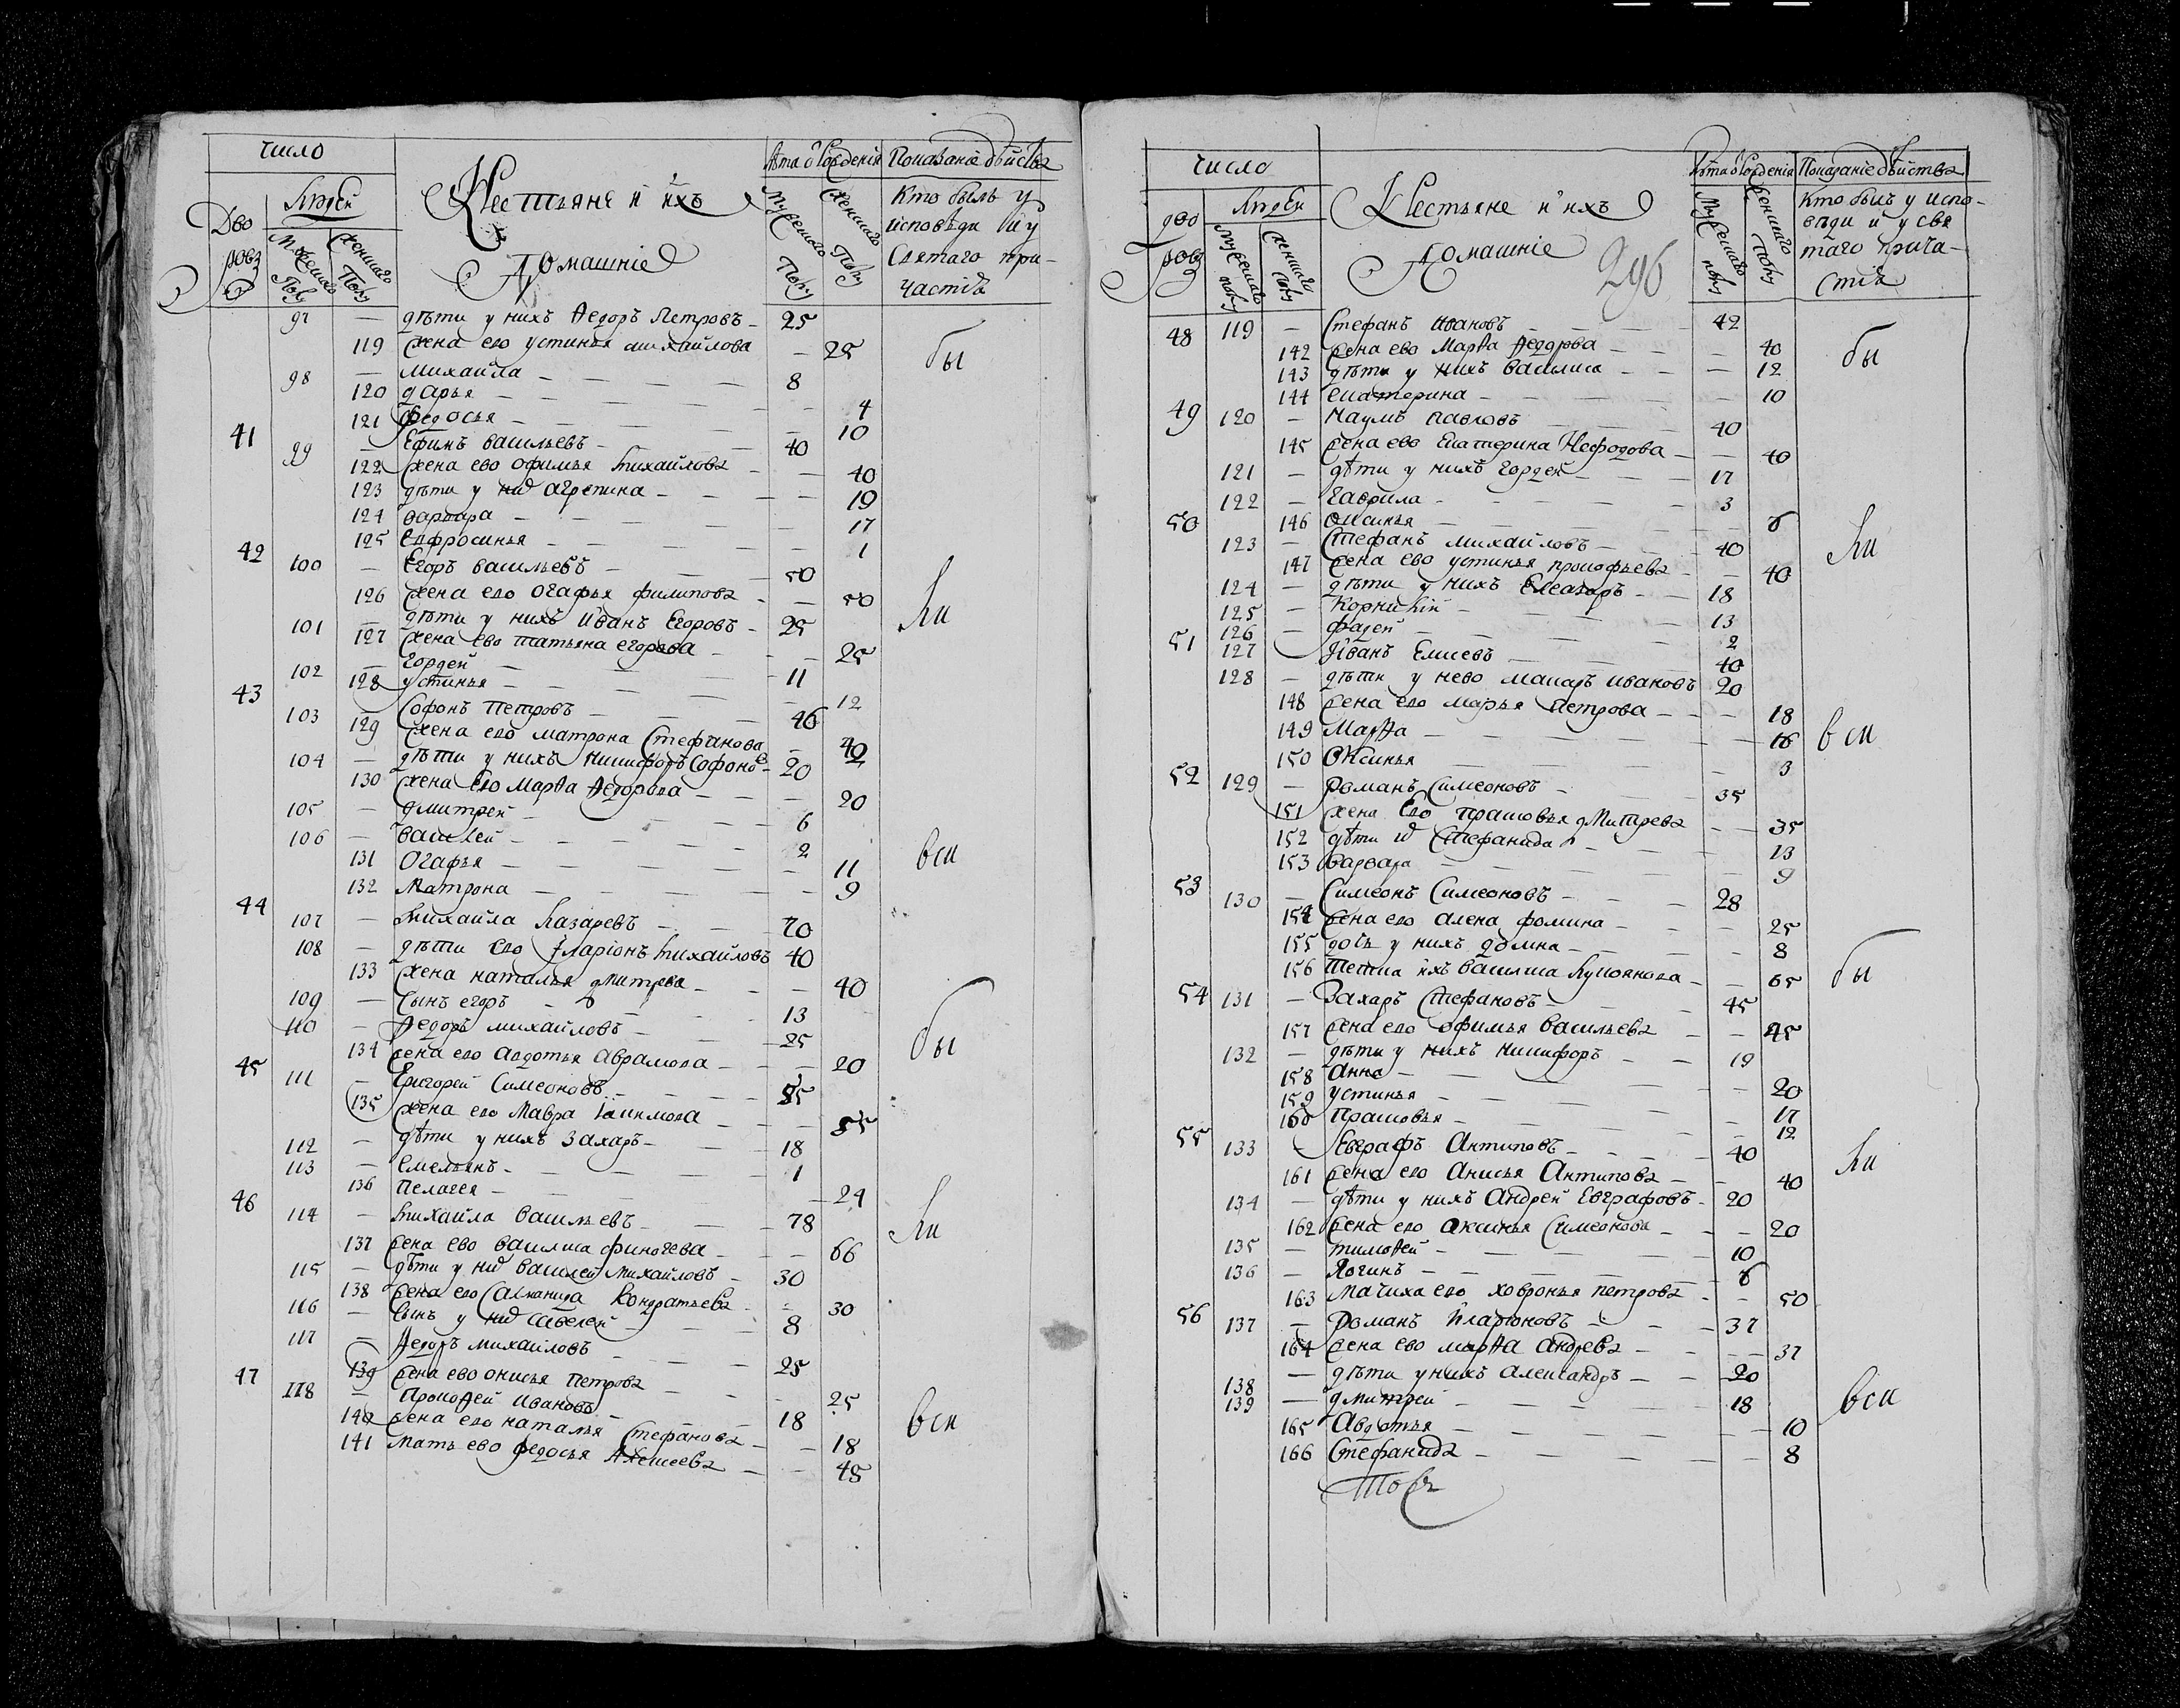 число
Людей
Дво
ровъ
Мужеска
Полу
Женскаго
Полу
Крестьяне и ихъ
домашніе
Лѣта ѿ Рожденія
Мужескаго
Полу
Женскаго
Полу
Показаніе дѣйства
Кто былъ у
исповѣди и у
Святаго при-
частія
97 — дѣти у нихъ Ѳедоръ Петровъ — 25
119 жена ево устинья михайлова — 25
98 — Михайла — 8
120 дарья — 4
121 федосья — 10
бы
41 99 — Ефимъ васильевъ — 40
122 жена ево офимья михайлова — 40
123 дѣти у них агрепина — 19
124 варвара — 17
125 Ефросинья — 1
42 100 — Егоръ васильевъ — 50
126 жена ево огафья филипова — 50
101 — дѣти у нихъ иванъ Егоровъ — 25
127 жена ево татьяна егорова — 25
102 — Гордей — 11
128 устинья — 12
ли
43 103 — Софонъ Петровъ — 46
129 жена ево матрона Стефанова — 40
104 — дѣти у нихъ никифоръ Софоновъ — 20
130 жена Ево Марѳа Ѳедорова — 20
105 — дмитрей — 6
106 — василей — 2
131 Огафья — 11
132 Матрона — 9
вси
44 107 — михайла Лазаревъ — 70
108 — дѣти ево Іларіонъ михайловъ 40
133 жена наталья дмитрева — 40
109 — Сынъ егоръ — 13
110 — Ѳедоръ михайловъ — 25
134 жена ево авдотья аврамова — 20
бы
45 111 — Григорей Симеоновъ — 55
135 жена ево Мавра Іакимова — 55
112 — дѣти у нихъ захаръ — 18
113 — Емельянъ — 1
136 пелагея — 24
46 114 — михайла васильевъ — 78
137 жена ево василиса финогева — 66
115 — дѣти у них василей михайловъ — 30
138 жена ево Саломанида кондратьева — 30
116 — Сынъ у них савелей — 8
117 — Ѳедоръ михайловъ — 25
139 жена ево онисья петрова — 25
ли
47 118 — Прокофей ивановъ — 18
140 жена ево наталья Стефанова — 18
141 Мать ево федосья Алексеева — 45
вси
число
Людей
дво
ровъ
Мужескаго
полу
Женскаго
полу
Крестьяне и ихъ
домашніе
296
Лѣта ѿ Рожденія
Мужескаго
полу
Женскаго
полу
Показаніе дѣйства
Кто былъ у испо-
вѣди и у свя
таго прича-
стія
48 119 — Стефанъ ивановъ — 42
142 жена ево Марѳа Ѳедорова — 40
143 дѣти у нихъ василиса — 12
144 екатерина — 10
бы
49 120 — Наумъ павловъ — 40
145 жена ево Екатерина Нефодова — 40
121 — дѣти у нихъ гордей — 17
122 — гаврила — 3
146 оксинья — 6
50 123 — Стефанъ михайловъ — 40
147 жена ево устинья прокофьева — 40
124 — дѣти у нихъ Елеазаръ — 18
125 — корнилій — 13
126 — фадей — 2
ли
51 127 Иванъ Елисевъ — 40
128 — дѣти у нево макаръ ивановъ 20
148 жена ево марья петрова — 18
149 Марѳа — 16
150 Оксинья — 3
52 129 — Романъ Симеоновъ — 35
151 жена Ево прасковья дмитрева — 35
152 дѣти их Стефанида — 13
153 варвара — 9
вси
53 130 — Симеонъ Симеоновъ — 28
154 жена ево алена фомина — 25
155 дочь у нихъ домна — 8
156 тетка ихъ василиса лукоянова — 65
54 131 — Захаръ Стефановъ — 45
157 жена ево офимья васильева — 45
132 — дѣти у нихъ никифоръ — 19
158 анна — 20
159 устинья — 17
160 прасковья — 12
бы
55 133 — Евграфъ Антиповъ — 40
161 жена ево Анисья Антипова — 40
134 — дѣти у нихъ Андрей Евграфовъ — 20
162 жена ево аксинья Симеонова — 20
135 — тимоѳей — 10
136 — Логинъ — 6
163 Мачиха ево ховронья петрова — 50
ли
56 137 — Романъ иларіоновъ — 37
164 жена ево марѳа андрева — 37
138 — дѣти у нихъ александръ — 20
139 — дмитрей — 18
165 Авдотья — 10
166 Стефанида — 8
вси